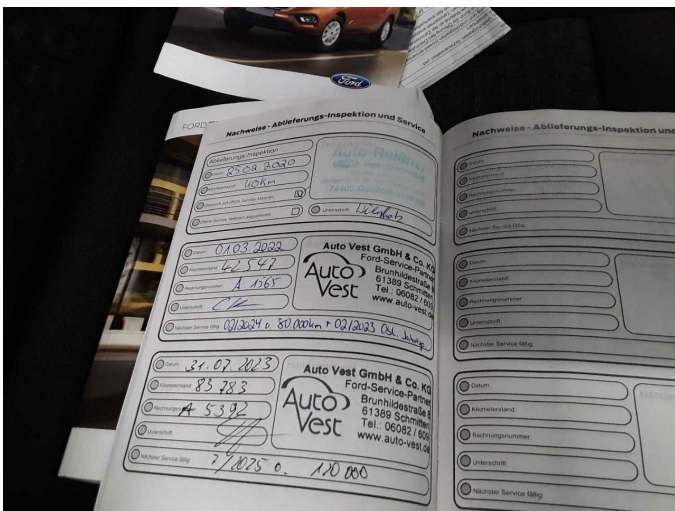 Ford
FORD
Nachweise - Ablieferungs-Inspektion und Service
Ablieferungs-Inspektion
Datum 25.02.2020
Kilometerstand 40km
Unterschrift
Datum 01.03.2022
Kilometerstand 42547
Rechnungsnummer A 1365
Unterschrift
Nächster Service fällig 02/2024 o. 80.000km + 02/2023
Auto Vest GmbH & Co. KG
Ford-Service-Partner
Brunhildestraße 8
61389 Schmitten
Tel.: 06082 / 609
www.auto-vest.de
Auto
Vest
Datum 31.07.2023
Kilometerstand 83 783
A 5392
Unterschrift
Nächster Service fällig 7/2025 o. 120 000
Auto Vest GmbH & Co. KG
Ford-Service-Partner
Brunhildestraße 8
61389 Schmitten
Tel.: 06082 / 609
www.auto-vest.de
Auto
Vest
Nachweise - Ablieferungs-Inspektion und
Datum
Kilometerstand
Rechnungsnummer
Unterschrift
Nächster Service fällig
Datum
Kilometerstand
Rechnungsnummer
Unterschrift
Nächster Service fällig
Datum
Kilometerstand
Rechnungsnummer
Unterschrift
Nächster Service fällig